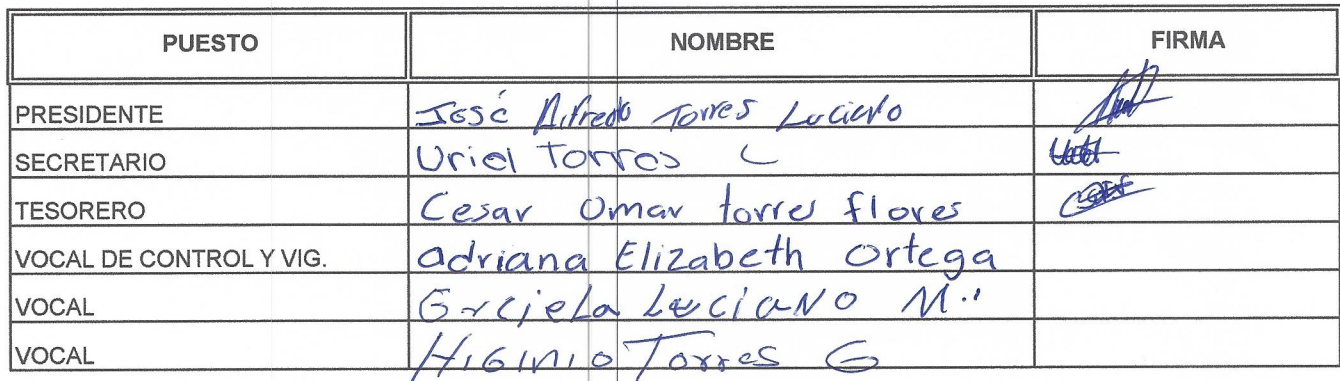 PUESTO NOMBRE FIRMA
PRESIDENTE José Alfredo Torres Luciano
SECRETARIO Uriel Torres L
TESORERO Cesar Omar torres flores
VOCAL DE CONTROL Y VIG. adriana Elizabeth Ortega
VOCAL Grciela Luciano M.
VOCAL HIGINIO Torres G